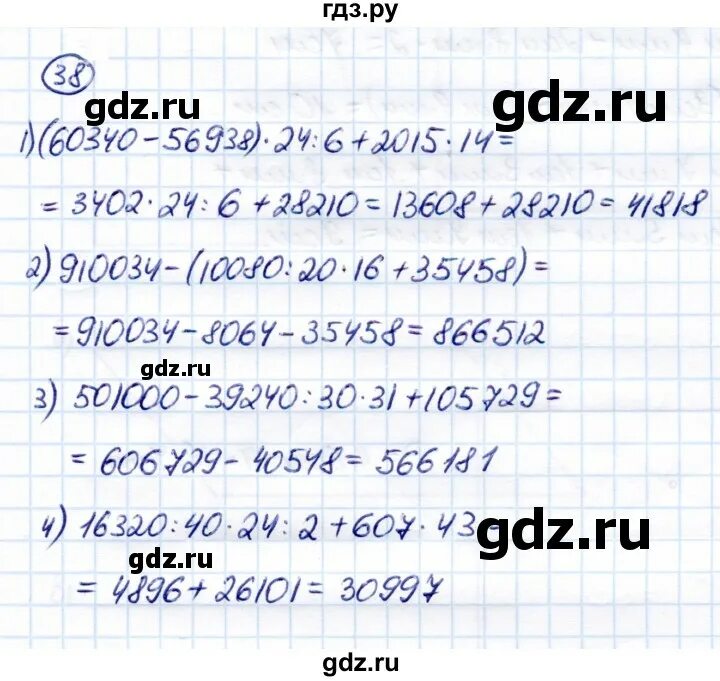 гдз.ру
38
gdz.ru
gdz.ru
1) (60340-56938)·24:6+2015·14=
= 3402·24:6+28210=13608+28210=41818
2) 910034-(10080:20·16+35458)=
=910034-8064-35458=866512
gdz.ru
3) 501000-39240:30·31+105729=
= 606729-40548=566181
gdz.ru
4) 16320:40·24:2+607·43=
gdz.ru
= 4896+26101=30997
gdz.ru